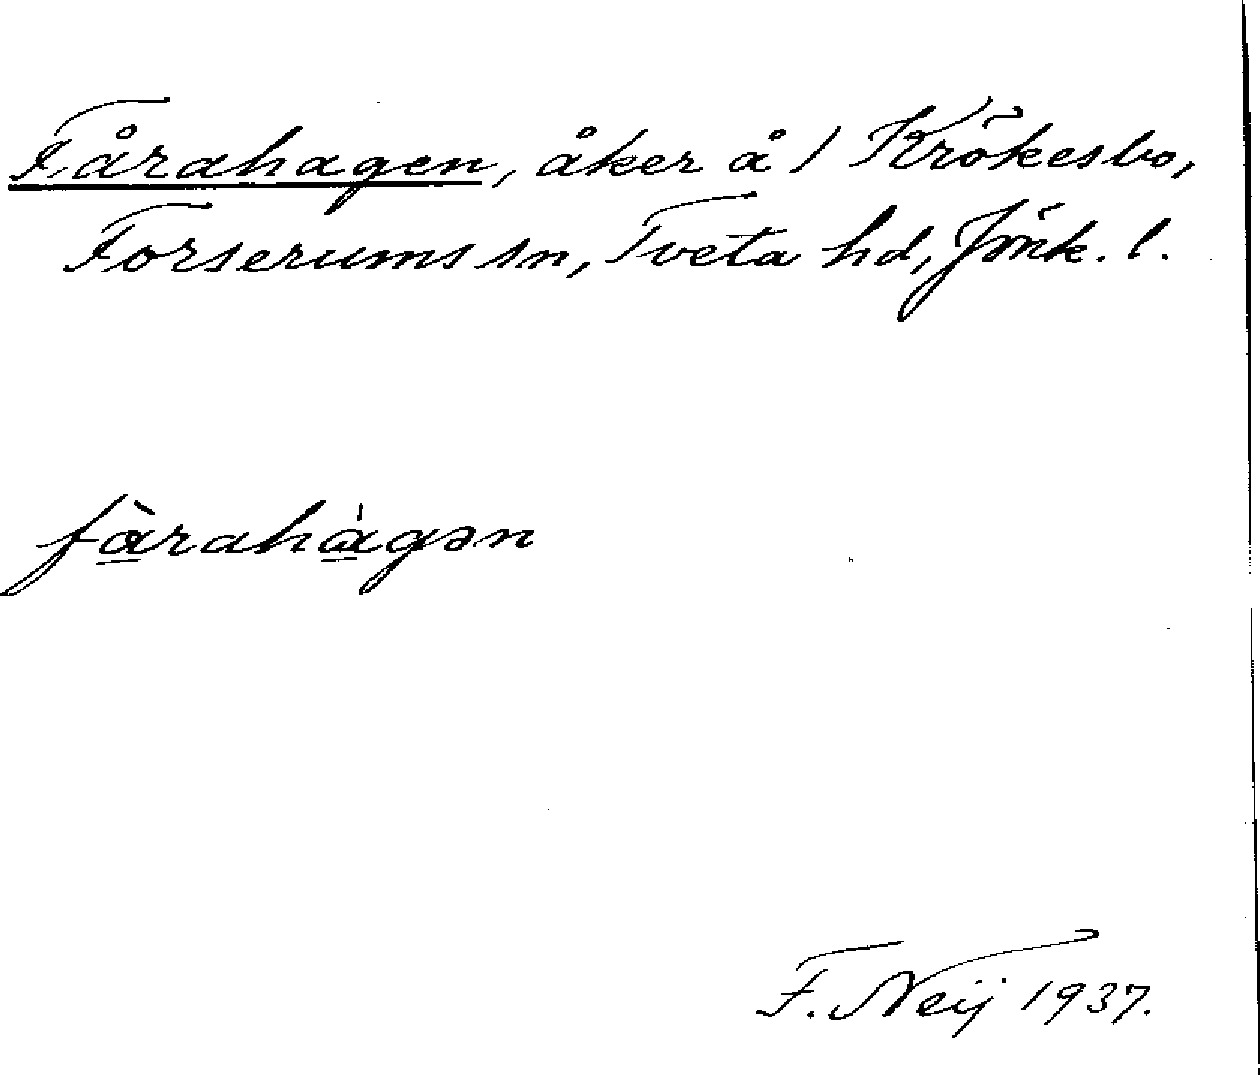 Fårahagen, åker å 1 Krökesbo,
Forserums sn, Tveta hd, Jönk. l.
fàrahàgən
F. Neij 1937.